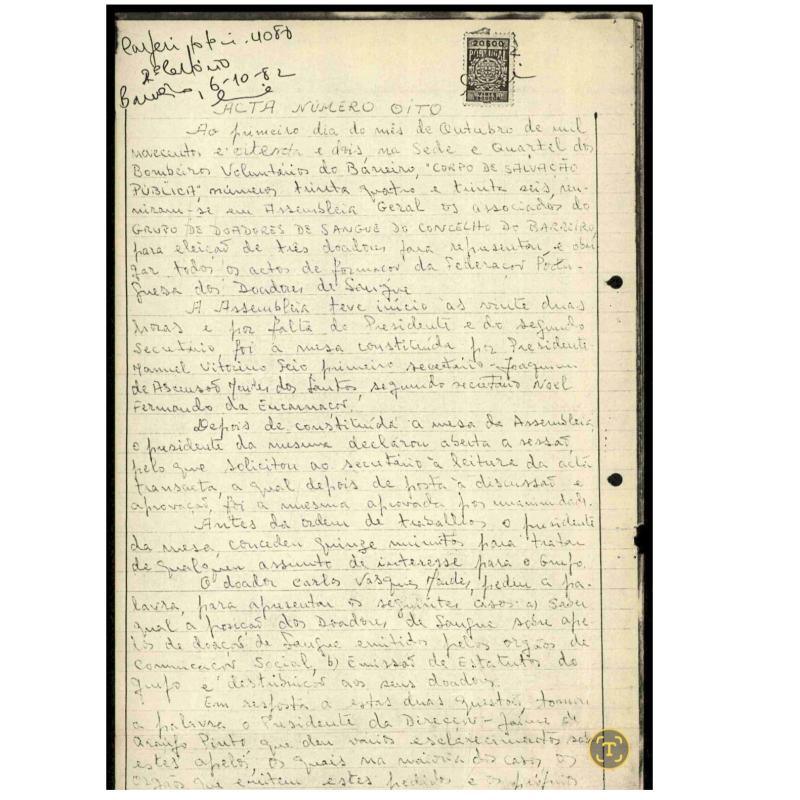 Barreiro, 6-10-82
20$00
PORTUGAL
ACTA NÚMERO OITO
Ao primeiro dia do mês de Outubro de mil
novecentos e oitenta e dois, na Sede e Quartel dos
Bombeiros Voluntários do Barreiro, "CORPO DE SALVAÇÃO
PÚBLICA", números trinta quatro e trinta seis, reu-
niram-se em Assembleia Geral os associados do
GRUPO DE DOADORES DE SANGUE DO CONCELHO DO BARREIRO,
para eleição de três doadores para representar e obri
gar todos os actos de formação da Federação Portu-
guesa dos Doadores de Sangue
A Assembleia teve início às vinte duas
horas e por falta do Presidente e do segundo
Secretário, foi a mesa constituída por Presidente-
Manuel Vitorino Feio, primeiro secretário - Joaquim
de Ascensão Mendes dos Santos, segundo secretário Noel
Fernando da Encarnação.
Depois de constituída a mesa da Assembleia,
o presidente da mesma declarou aberta a sessão,
pelo que solicitou ao secretário a leitura da acta
transacta, a qual depois de posta à discussão e
aprovação, foi a mesma aprovada por unanimidade.
Antes da ordem de trabalhos, o presidente
da mesa, concedeu quinze minutos para tratar
de qualquer assunto de interesse para o Grupo.
O doador Carlos Vasques Mendes, pediu a pa-
lavra, para apresentar os seguintes casos: a) Saber
qual a posição dos Doadores de Sangue sobre ape-
los de doação de Sangue emitidos pelos orgãos de
Comunicação Social, b) Emissão de Estatutos do
Grupo e distribuição aos seus doadores.
Em resposta a estas duas questões, tomou
a palavra o Presidente da Direcção - Jaime de
Araújo Pinto que deu vários esclarecimentos sobre
estes apelos, os quais na maioria dos casos os
orgãos que emitem estes pedidos e os próprios